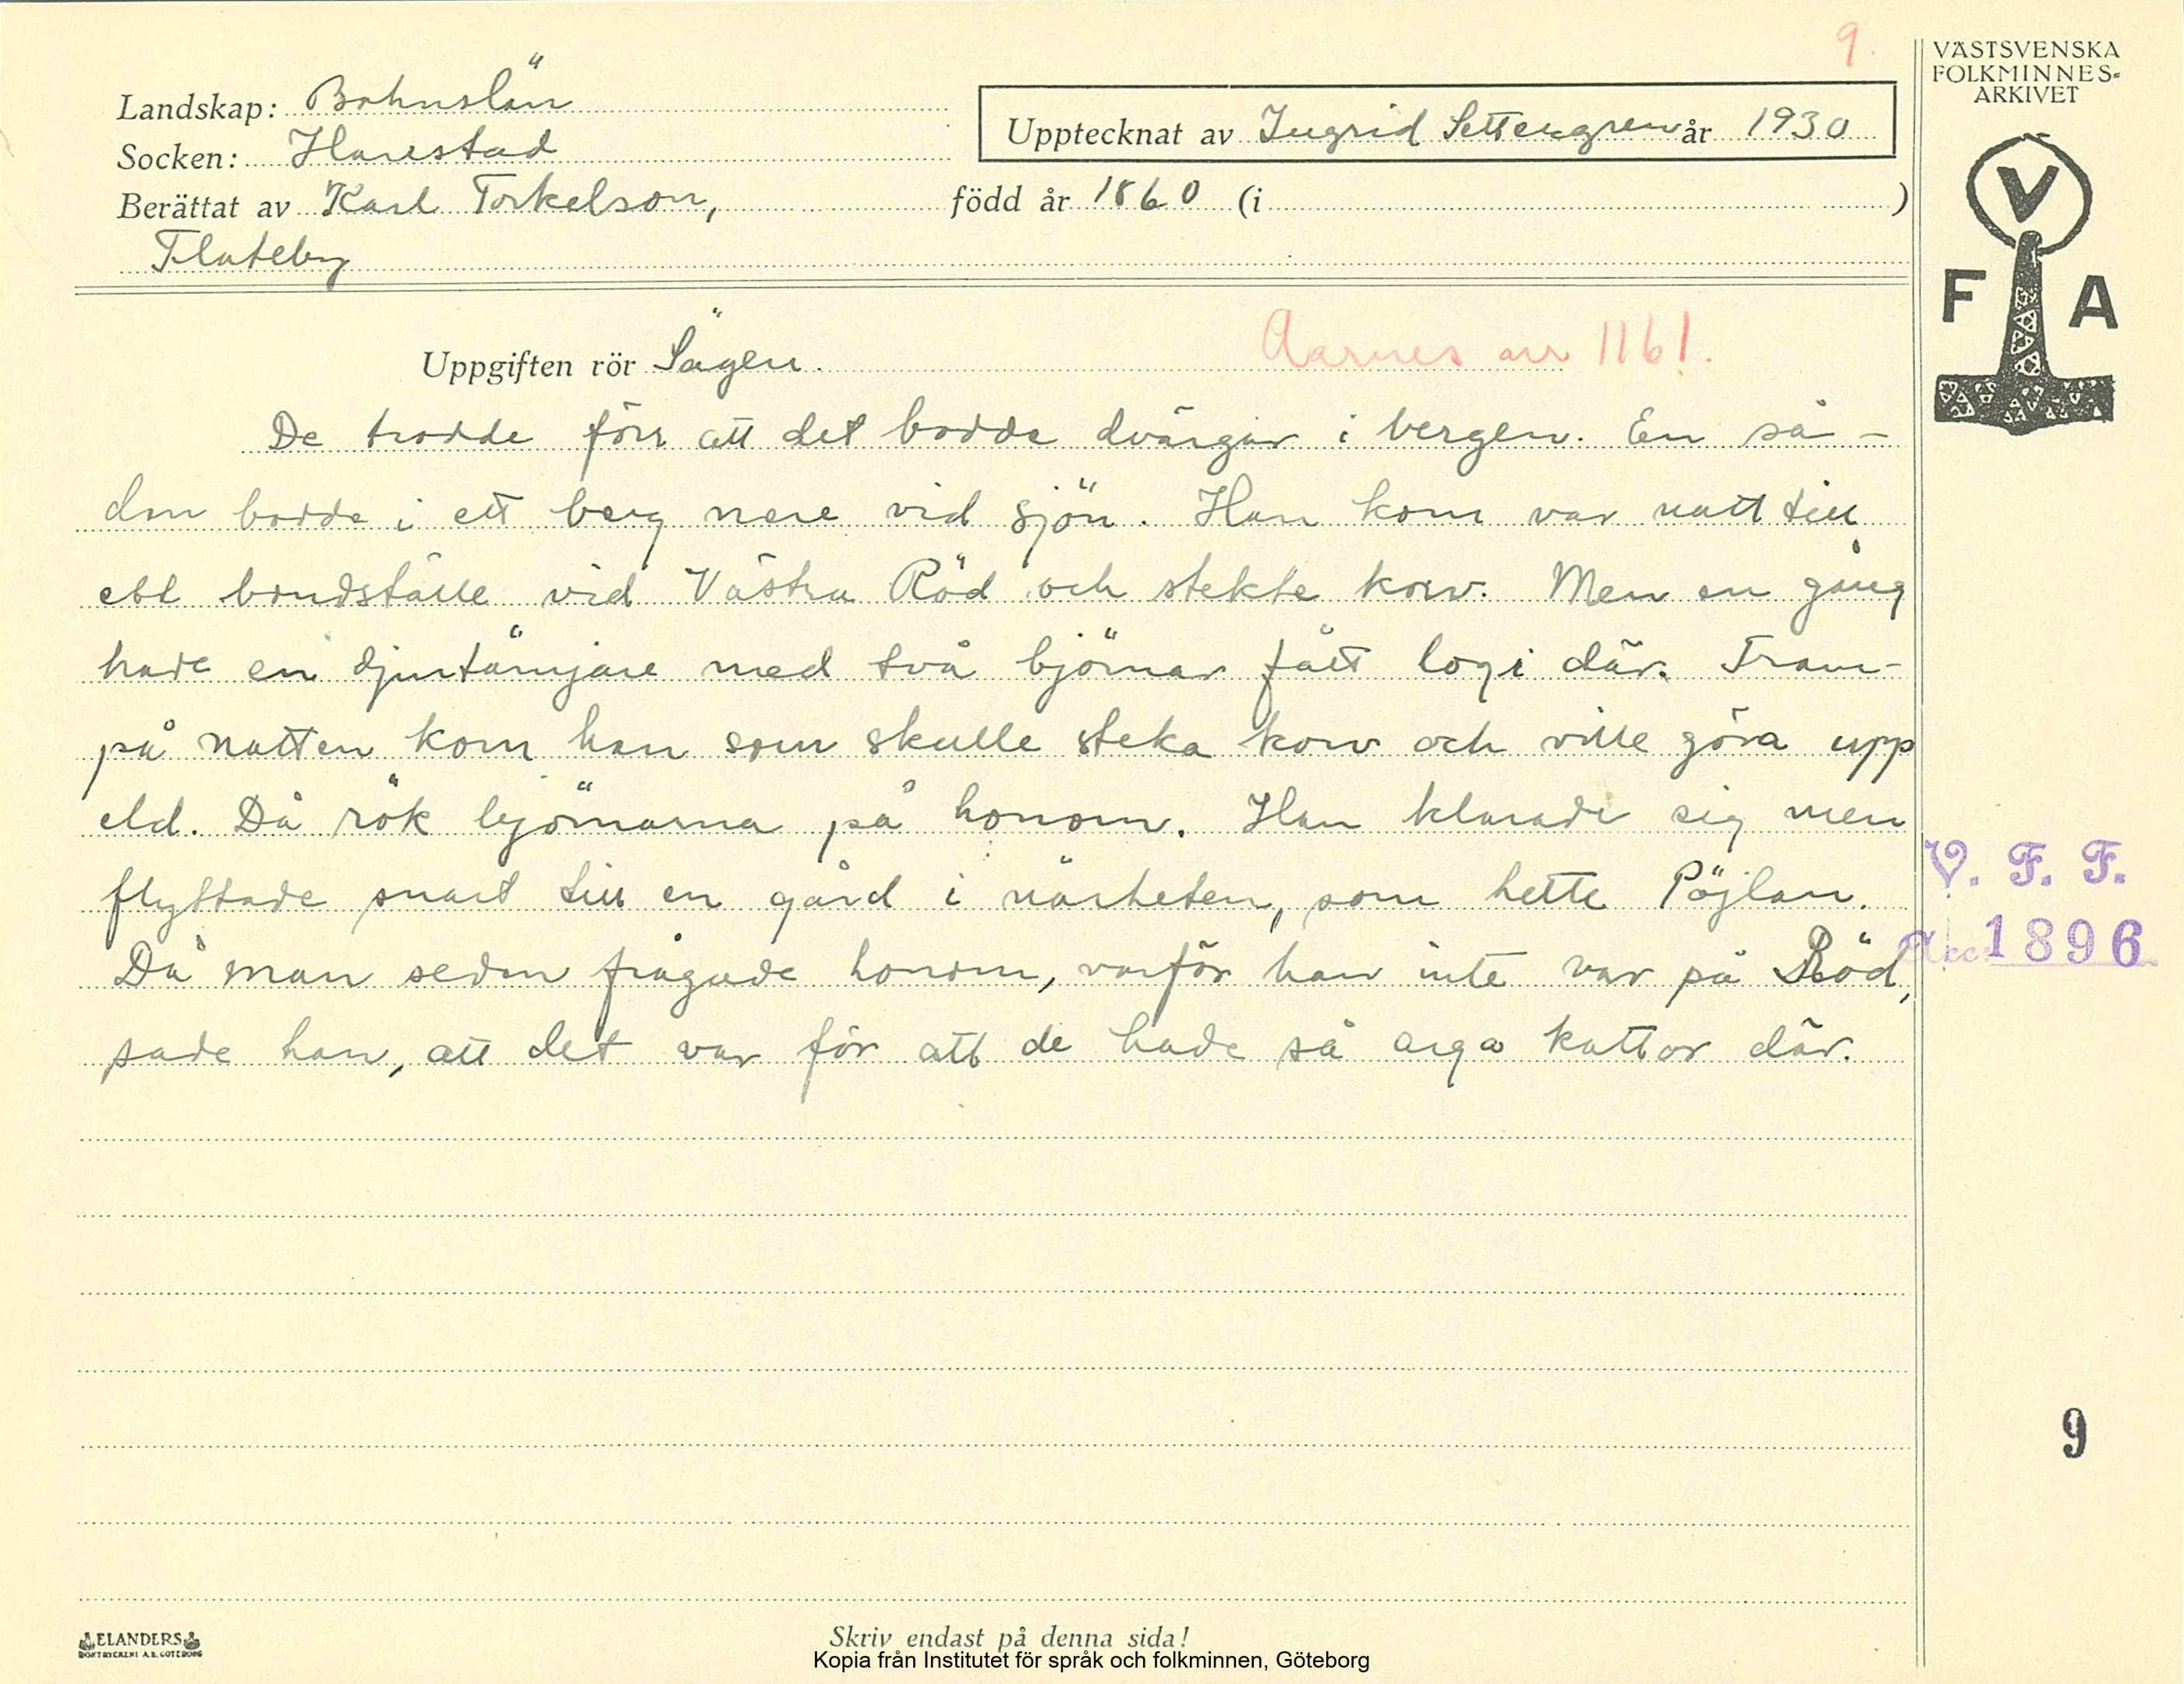 9.
VÄSTSVENSKA
FOLKMINNES-
ARKIVET
Landskap: Bohuslän
Upptecknat av Ingrid Settergren år 1930
Socken: Harestad
Berättat av Karl Torkelson, född år 1860 (i )
Flateby
V
F A
Uppgiften rör Sägen.
Aarnes nr 1161.
De trodde förr att det bodde dvärgar i bergen. En så-
dan bodde i ett berg nere vid sjön. Han kom var natt till
ett bondställe vid Västra Röd och stekte korv. Men en gång
hade en djurtämjare med två björnar fått logi där. Fram-
på natten kom han som skulle steka korv och ville göra upp
eld. Då rök björnarna på honom. Han klarade sig men
flyttade snart till en gård i närheten, som hette Pöjlan.
Då man sedan frågade honom, varför han inte var på Röd,
sade han, att det var för att de hade så arga kattor där.
V. F. F.
Acc. 1896
9
ELANDERS
BOKTRYCKERI A.B. GÖTEBORG
Skriv endast på denna sida!
Kopia från Institutet för språk och folkminnen, Göteborg